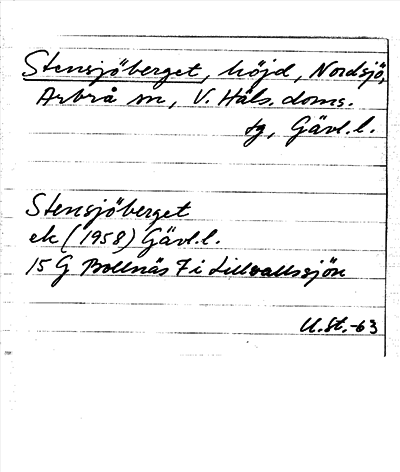 Stensjöberget, höjd, Nordsjö,
Arbrå sn, V. Häls. doms.
tg, Gävl.l.
Stensjöberget
ek (1958) Gävl.l.
15 G Bollnäs 7 i Lillvallssjön
U.St.-63